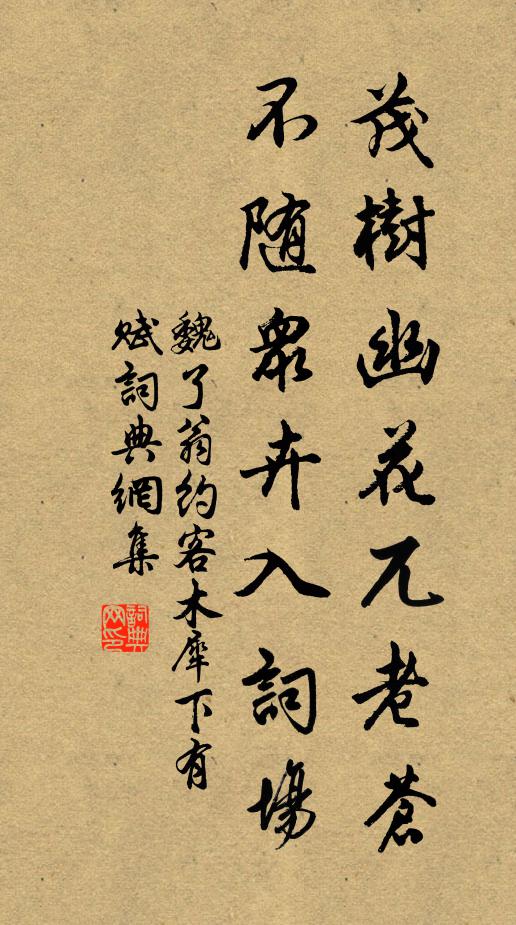 茂樹幽花兀老蒼
不随眾卉入詞場
魏了翁約客木犀下有
賦詞典網集
詞典
网印